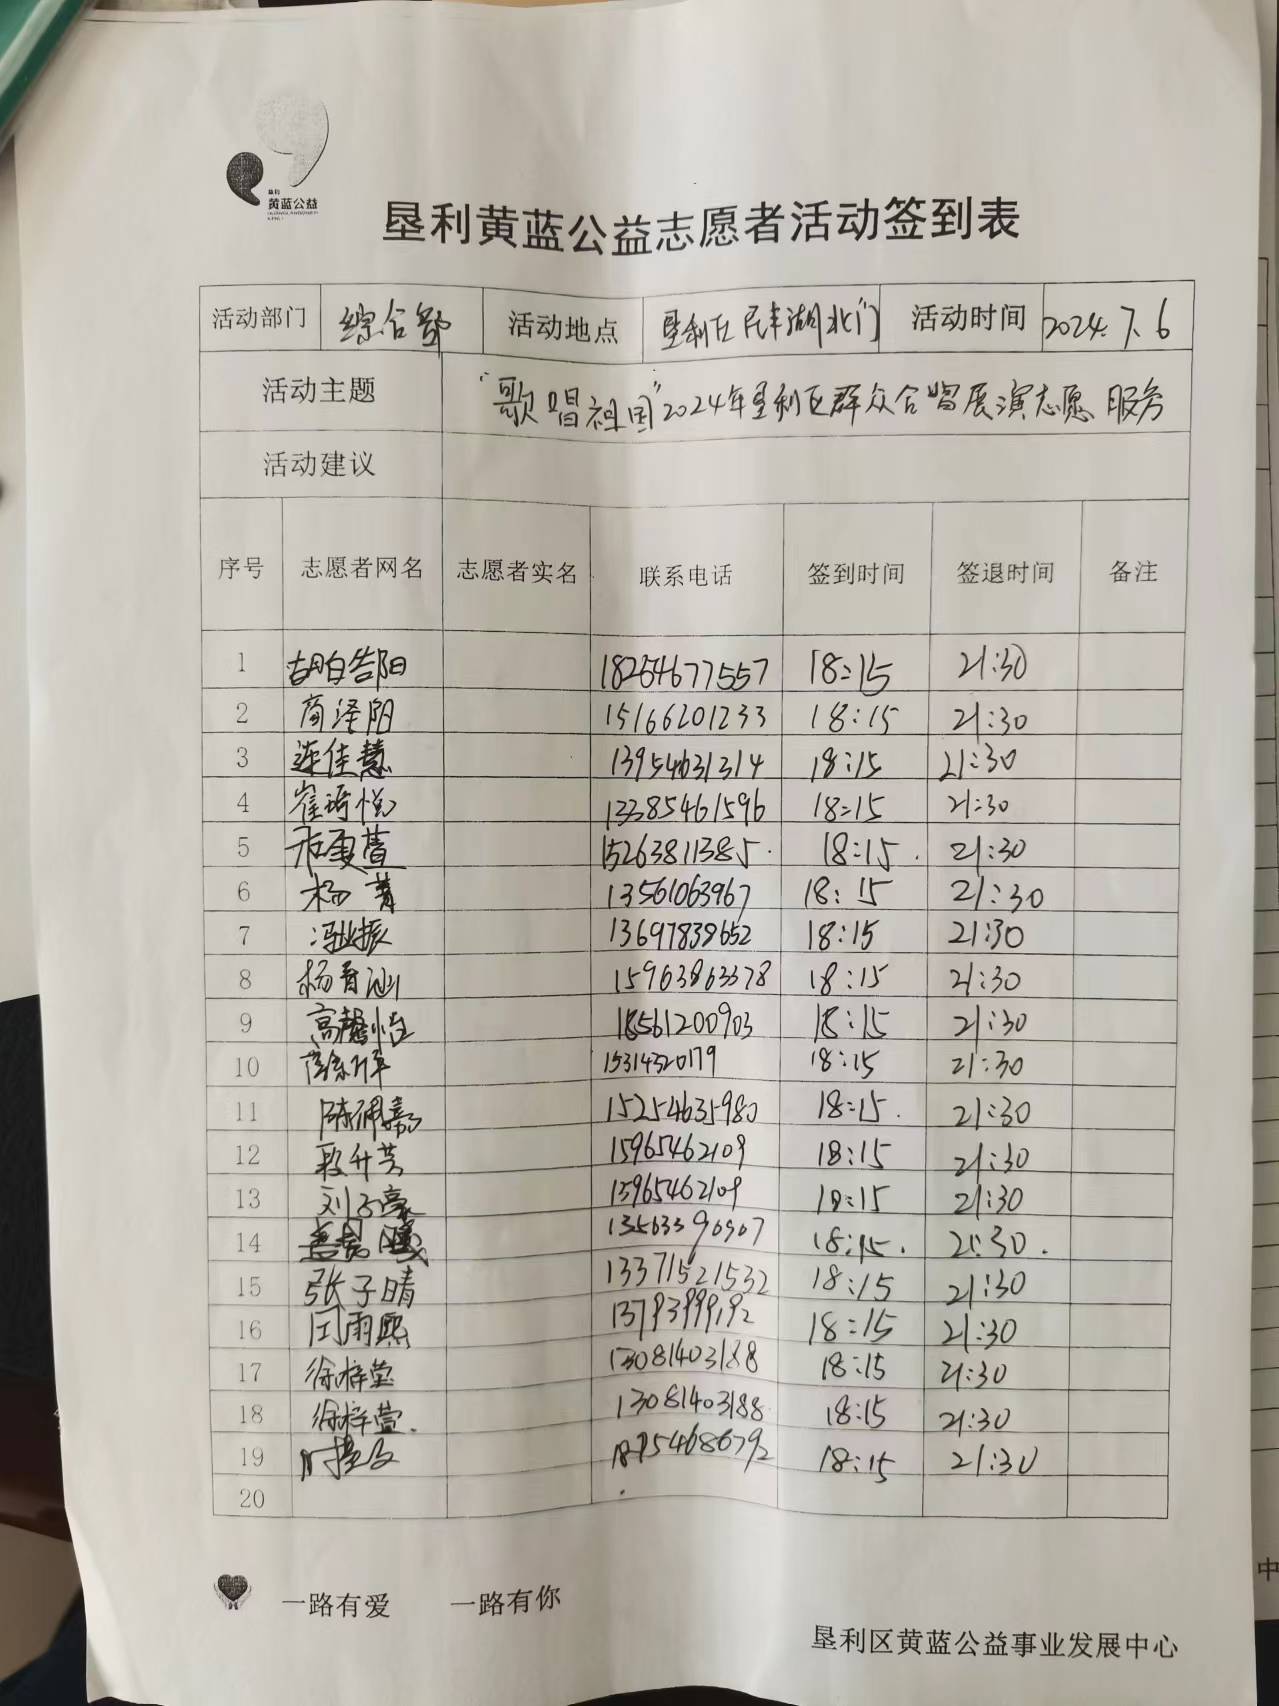 垦利
黄蓝公益
垦利黄蓝公益志愿者活动签到表
活动部门 综合部 活动地点 垦利区民丰湖北门 活动时间 2024.7.6
活动主题 "歌唱祖国"2024年垦利区群众合唱展演志愿服务
活动建议
序号 志愿者网名 志愿者实名 联系电话 签到时间 签退时间 备注
1 18254677557 18:15 21:30
2 商泽阳 15166201233 18:15 21:30
3 连佳慧 13954631314 18:15 21:30
4 崔琦悦 13385461596 18:15 21:30
5 15263811385 18:15 21:30
6 杨菁 13561063967 18:15 21:30
7 冯业振 13697838652 18:15 21:30
8 15963863378 18:15 21:30
9 高馨怡 18561200903 18:15 21:30
10 15314320179 18:15 21:30
11 陈佩嘉 15254635980 18:15 21:30
12 15965462109 18:15 21:30
13 刘子豪 15965462109 18:15 21:30
14 18:15 21:30
15 张子晴 13371521532 18:15 21:30
16 闫雨熙 18:15 21:30
17 徐梓莹 13081403188 18:15 21:30
18 徐梓萱 13081403188 18:15 21:30
19 18:15 21:30
20
一路有爱 一路有你
垦利区黄蓝公益事业发展中心
中